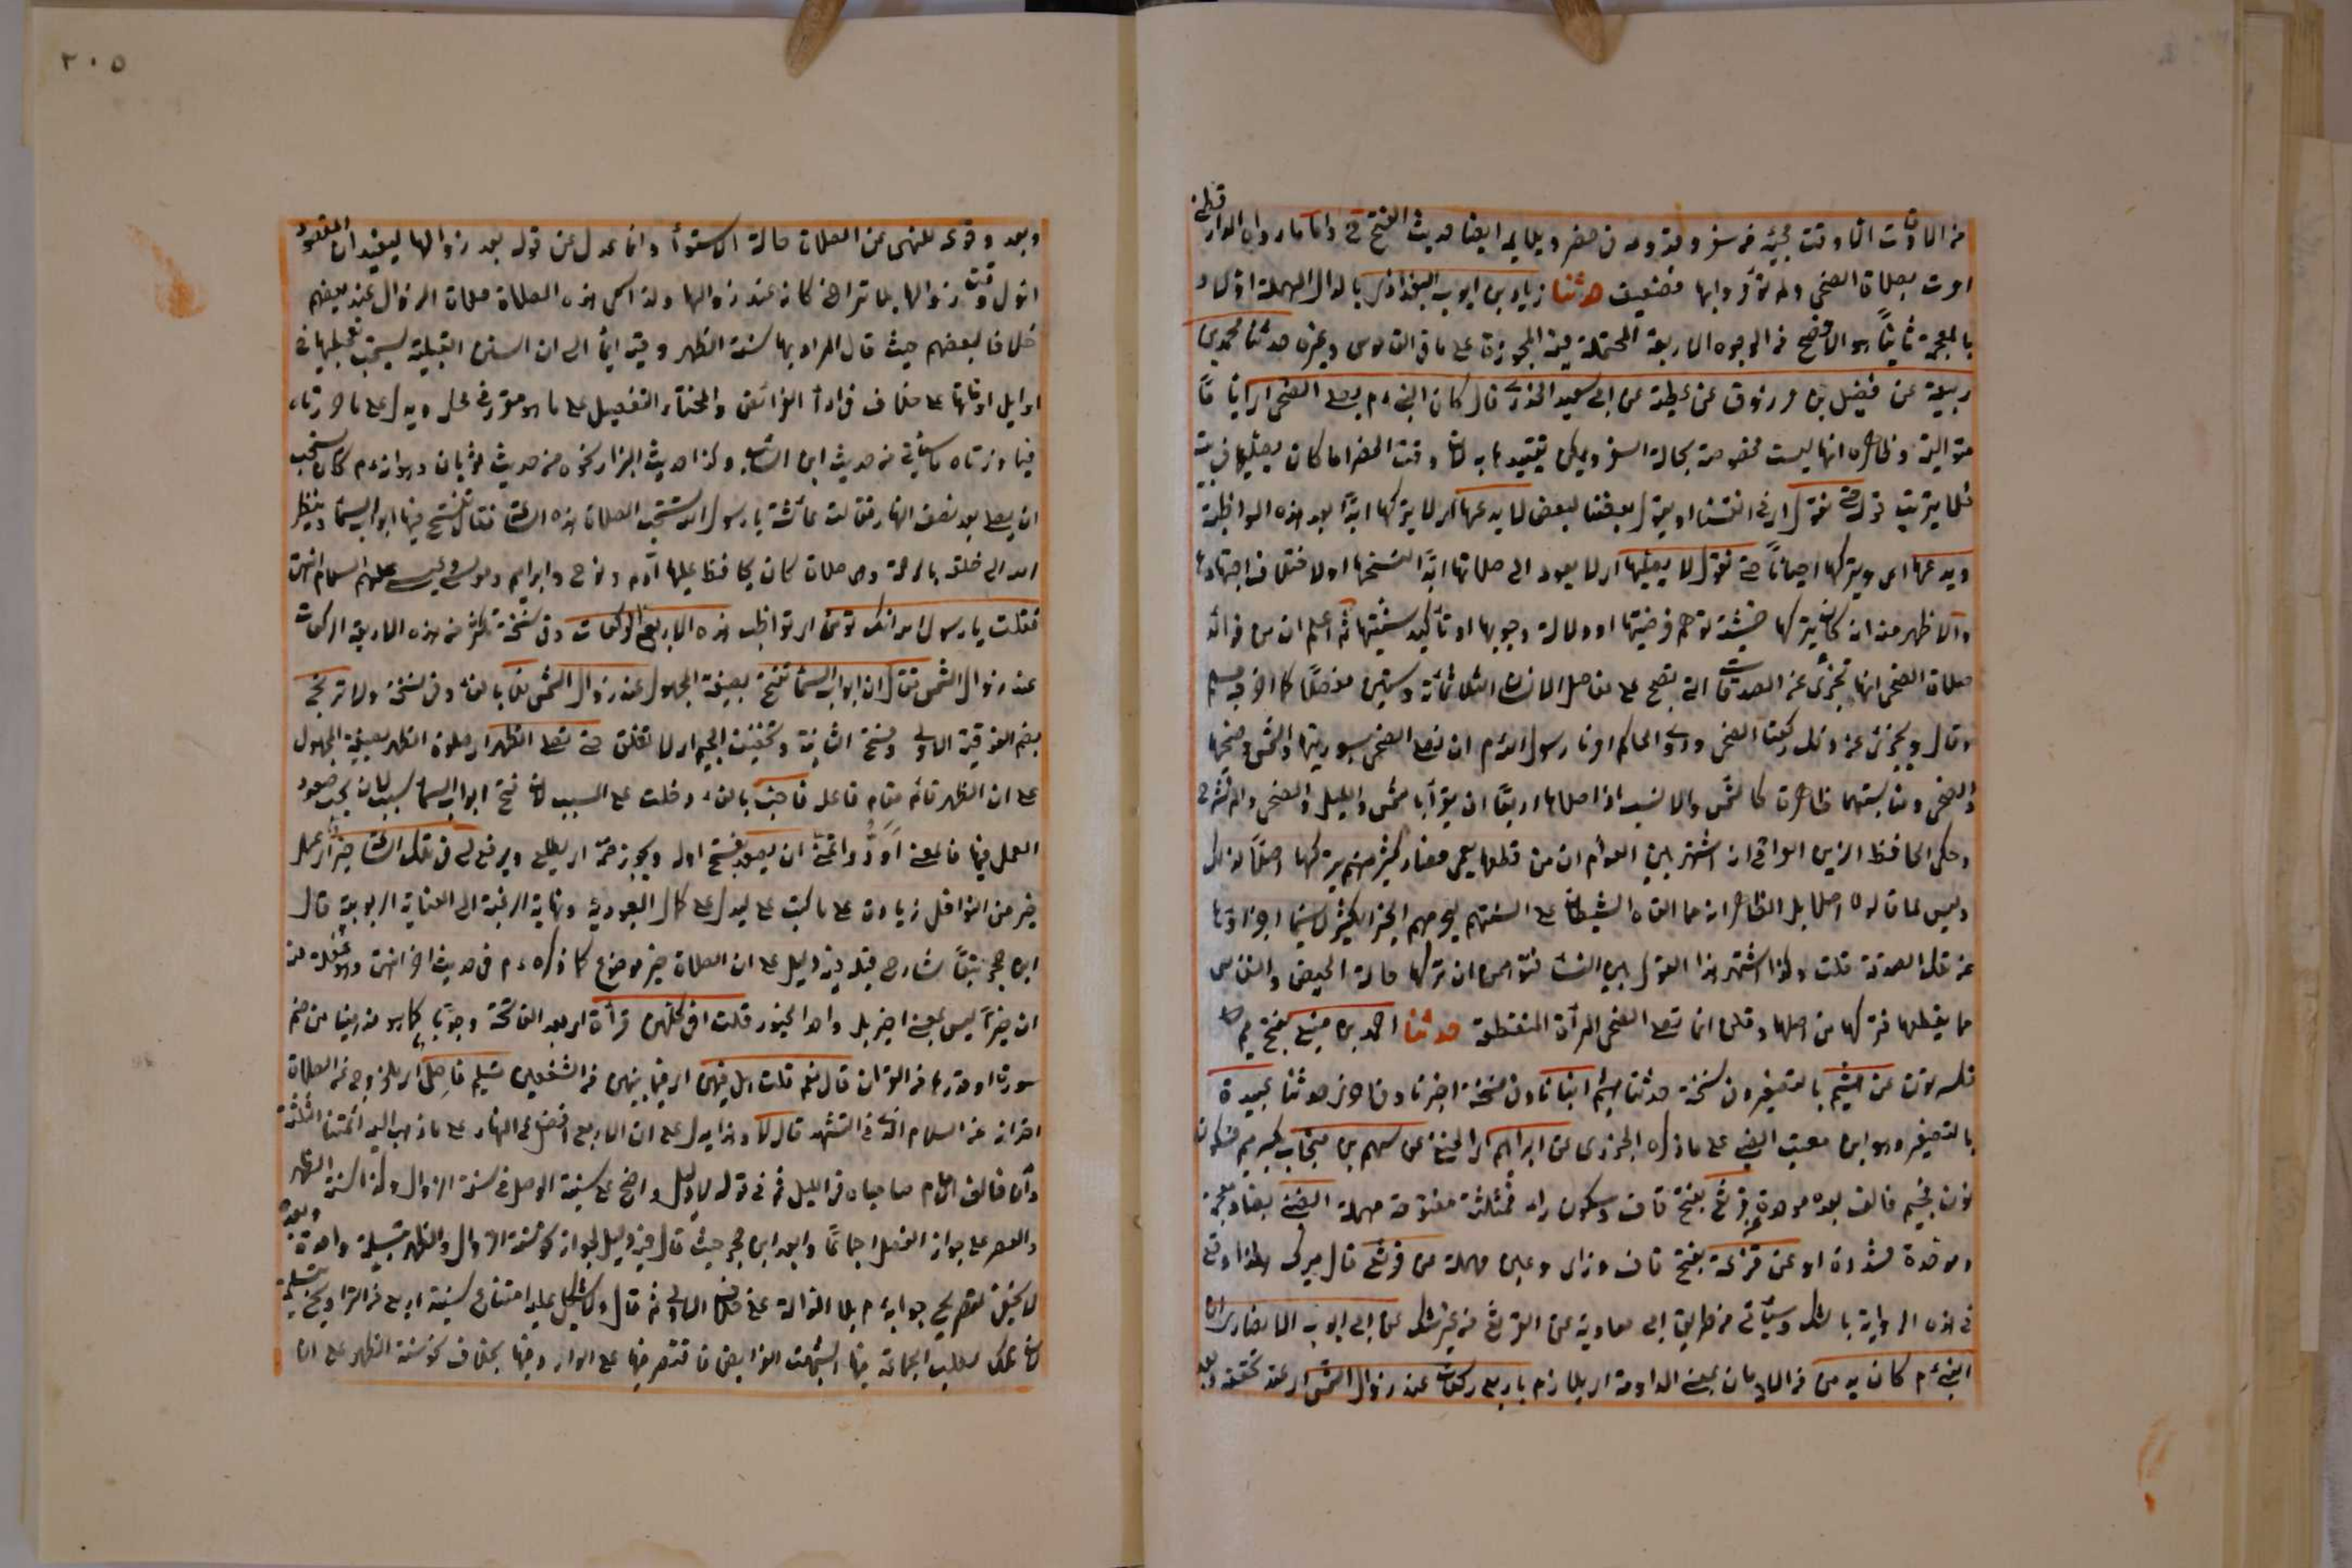 من الاوقات الا وقت مجيئه من سفر وقدومه في حضر ويلايمه ايضا حديث الفتح واما ما رواه الدارقطني
امرت بصلاة الضحى ولم تؤمروا بها فضعيف حدثنا زياد بن ايوب البغدادي بالدال المهملة اولا و
بالمعجمة ثانيا هو الافصح من الوجوه الاربعة المحتملة فيه المجوزة على ما في القاموس وغيره حدثنا محمد بن
ربيعة عن فضيل بن مرزوق عن عطية عن ابي سعيد الخدري قال كان النبي ءم يصلي الضحى اي اياما
متوالية وظاهره انها ليست مخصوصة بحالة السفر ويمكن تقييدها به لان وقت الحضر اما كان يصليها في بيت
فلا يترتب قوله حتى نقول اي في انفسنا او يقول بعضنا لبعض لا يدعها اي لا يتركها ابدا بعد هذه المواظبة
ويدعها اي ويتركها احيانا حتى نقول لا يصليها اي لا يعود الى صلاتها ابدا لنسخها او لاختلاف اجتهاده
والاظهر منه انه كان يتركها خشية توهم فرضيتها او دلالة وجوبها او تأكيد سنيتها ثم اعلم ان من فوائد
صلاة الضحى انها تجزئ عن الصدقات التي تصح على مفاصل الانسان الثلاثمائة وستين مفصلا كما اخرجه مسلم
وقال ويجزئ عن ذلك ركعتا الضحى وروى الحاكم امرنا رسول الله ءم ان نصلي الضحى بسورتيها والشمس وضحيها
والضحى ومناسبتهما ظاهرة كالشمس والانسب اذا صلاها اربعا ان يقرأ بالشمس والليل والضحى والم نشرح
وحكى الحافظ الزين العراقي انه اشتهر بين العوام ان من قطعها يعمى فصار كثير منهم يتركها اصلا لذلك
وليس لما قالوه اصل بل الظاهر انه مما القاه الشيطان على السنتهم ليحرمهم الخير الكثير لا سيما اجزاؤها
عن تلك الصدقة قلت وكذا اشتهر هذا القول بين النساء فتوهمن ان تركها حالة الحيض والنفاس
مما يقطعها فتركها من اصلها وقلن انما تصلي الضحى المرأة المنقطعة حدثنا احمد بن منيع بفتح ميم
فكسر نون عن هشيم بالتصغير وفي نسخة حدثنا هشيم انبانا وفي نسخة اخبرنا وفي اخرى حدثنا عبيدة
بالتصغير وهو ابن معتب الضبي على ما ذكره الجزري عن ابراهيم اي النخعي عن سهم بن منجاب بكسر ميم فسكون
نون فجيم فالف بعده موحدة عن قرثع بفتح قاف وسكون راء فمثلثة مفتوحة مهملة الضبي بضاد معجمة
وموحدة مشددة او عن قزعة بفتح قاف وزاي وعين مهملة عن قرثع قال ميرك هكذا وقع
في هذه الرواية بالشك وسيأتي من طريق ابي معاوية عن القرثع من غير شك عن ابي ايوب الانصاري ان
النبي ءم كان يدمن من الادمان بمعنى المداومة اي يلازم باربع ركعات عند زوال الشمس اي عند تحققه وبعد
٢٠٥
وبعد وقوعه للنهي عن الصلاة حالة الاستواء وانما عدل عن قوله بعد زوالها ليفيد ان المقصود
اول وقت زوالها بلا تراخ كانه عند زوالها ولذا سمى هذه الصلاة صلاة الزوال عند بعضهم
خلافا لبعضهم حيث قال المراد بها سنة الظهر وفيه ايما الى ان السنن القبلية يستحب تعجيلها في
اوايل اوقاتها على خلاف في اداء الفرائض والمختار التفصيل على ما هو مقرر في محله ويدل على ما حررناه
فيما ذكرناه ما سيأتي من حديث ابن السائب وكذا حديث البزار نحوه من حديث ثوبان وهو انه ءم كان يستحب
ان يصلي بعد نصف النهار فقالت عائشة يا رسول الله تستحب الصلاة هذه الساعة فقال تفتح فيها ابواب السماء وينظر
الله الى خلقه بالرحمة وهي صلاة كان يحافظ عليها آدم ونوح وابراهيم وموسى وعيسى عليهم السلام انتهى
فقلت يا رسول الله انك تدمن اي تواظب هذه الاربع الركعات وفي نسخة تكثر من هذه الاربع الركعات
عند زوال الشمس فقال ان ابواب السماء تفتح بصيغة المجهول عند زوال الشمس فلا بالفاء وفي نسخة ولا ترتج
بضم الفوقية الاولى وفتح الثانية وتخفيف الجيم اي لا تغلق حتى يصلى الظهر اي صلوة الظهر بصيغة المجهول
على ان الظهر قائم مقام فاعله فاحب بالفاء دخلت على المسبب لان فتح ابواب السماء سبب لان يحب صعود
العمل فيها فالمعنى اود واتمنى ان يصعد بفتح اوله ويجوز ضمه اي يطلع ويرفع لي في تلك الساعة خير اي عمل
خير من النوافل زيادة على ما كتب علي ليدل على كمال العبودية ونهاية الرغبة الى العناية الربوبية قال
ابن حجر تبعا لشارح قبله فيه دليل على ان الصلاة خير موضوع كما ذكره ءم في حديث اخر انتهى وهو غفلة من
ان خيرا ليس بمعنى اخير بل واحد الخيور قلت افي كلهن قرأة اي بعد الفاتحة وجوبا كما هو مذهبنا من ضم
سورة او قدرها من القرآن قال نعم قلت هل فيهن اي فيما بينهن من الشفعين تسليم فاصل اي بالخروج عن الصلاة
احتراز عن السلام الذي في التشهد قال لا وهذا يدل على ان الاربع افضل في النهار على ما ذهب اليه ائمتنا الثلثة
وانما خالف الامام صاحباه في الليل ثم في قوله لا دليل واضح على سنية الوصل في سنة الزوال وكذا سنة الظهر
والعصر على جواز الفصل اجماعا وابعد ابن حجر حيث قال فيه دليل لجواز نحو سنة الزوال والظهر بتسليمة واحدة
لا يخيل تصريح جوابه ءم بلا الدالة على خلاف الاولى ثم قال ولا يشكل عليه امتناع سنية اربع من التراويح بتسليمة
لان تلك لطلب الجماعة فيها اشبهت الفرايض فاقتصر فيها على الوارد فيها بخلاف نحو سنة الظهر على ان